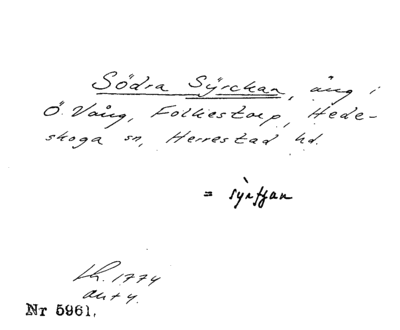 Södra Syrckan, äng i
Ö. Vång, Folkestorp, Hede-
skoga sn, Herrestad hd.
=
Lh. 1774
Nr 5961.